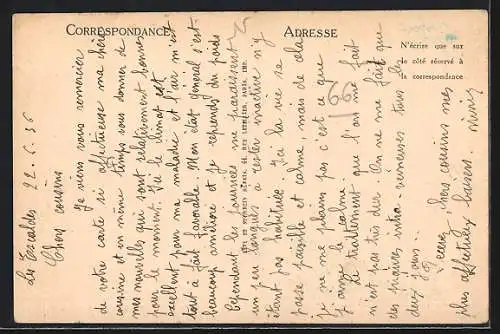 CORRESPONDANCE
ADRESSE
N'écrire que sur
le côté réservé à
la correspondance
Les Escaldes 22.6.36
Chers cousins
Je viens vous remercier
de votre carte si affectueuse ma chère
cousine et en même temps vous donner de
mes nouvelles qui sont relativement bonnes
pour le moment. Ici le climat est
excellent pour ma maladie et l'air m'est
tout à fait favorable. Mon état général s'est
beaucoup amélioré et je reprends du poids
Cependant les journées me paraissent
un peu longues à rester inactive n'y
étant pas habituée. Ici la vie se
passe paisible et calme; mais de cela
je ne me plains pas c'est ce que
j'aime le calme
Le traitement que l'on me fait
n'est pas très dur. On ne me fait que
des piqures intra-veineuses tous les
deux jours.
Recevez chers cousins mes
plus affectueux baisers.
16